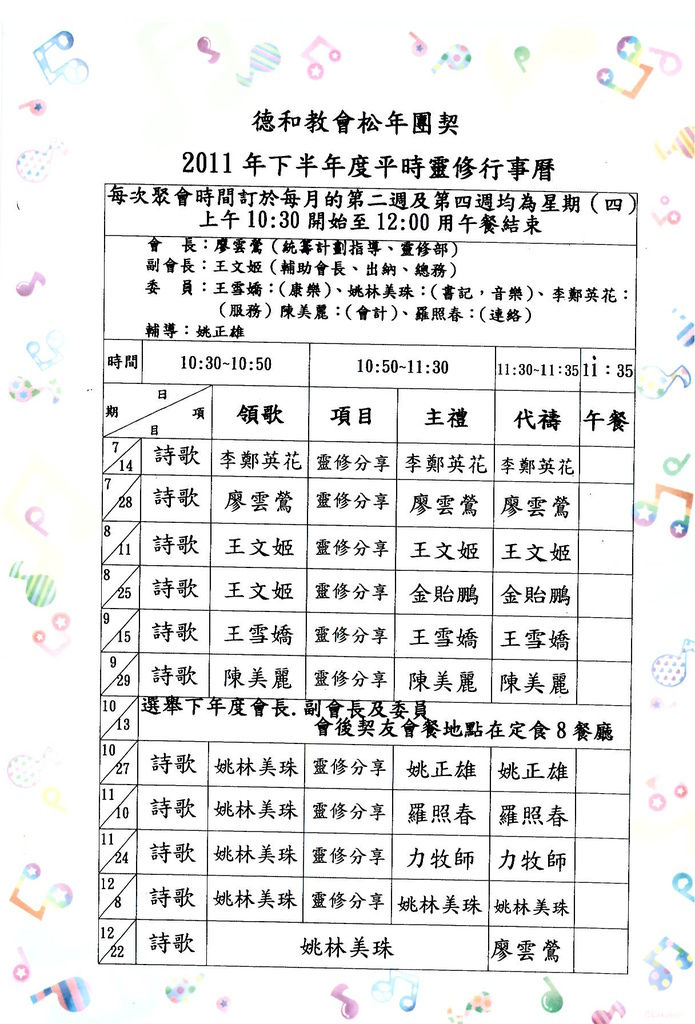 德和教會松年團契
2011年下半年度平時靈修行事曆
每次聚會時間訂於每月的第二週及第四週均為星期(四)
上午10:30開始至12:00用午餐結束
會 長：廖雲鶯(統籌計劃指導、靈修部)
副會長：王文姬(輔助會長、出納、總務)
委 員：王雪嬌：(康樂)、姚林美珠：(書記，音樂)、李鄭英花：
(服務)陳美麗：(會計)、羅照春：(連絡)
輔導：姚正雄
時間 10:30~10:50 10:50~11:30 11:30~11:35 11：35
日 期 項 目 領歌 項目 主禮 代禱 午餐
7/14 詩歌 李鄭英花 靈修分享 李鄭英花 李鄭英花
7/28 詩歌 廖雲鶯 靈修分享 廖雲鶯 廖雲鶯
8/11 詩歌 王文姬 靈修分享 王文姬 王文姬
8/25 詩歌 王文姬 靈修分享 金貽鵬 金貽鵬
9/15 詩歌 王雪嬌 靈修分享 王雪嬌 王雪嬌
9/29 詩歌 陳美麗 靈修分享 陳美麗 陳美麗
10/13 選舉下年度會長.副會長及委員
會後契友會餐地點在定食8餐廳
10/27 詩歌 姚林美珠 靈修分享 姚正雄 姚正雄
11/10 詩歌 姚林美珠 靈修分享 羅照春 羅照春
11/24 詩歌 姚林美珠 靈修分享 力牧師 力牧師
12/8 詩歌 姚林美珠 靈修分享 姚林美珠 姚林美珠
12/22 詩歌 姚林美珠 廖雲鶯